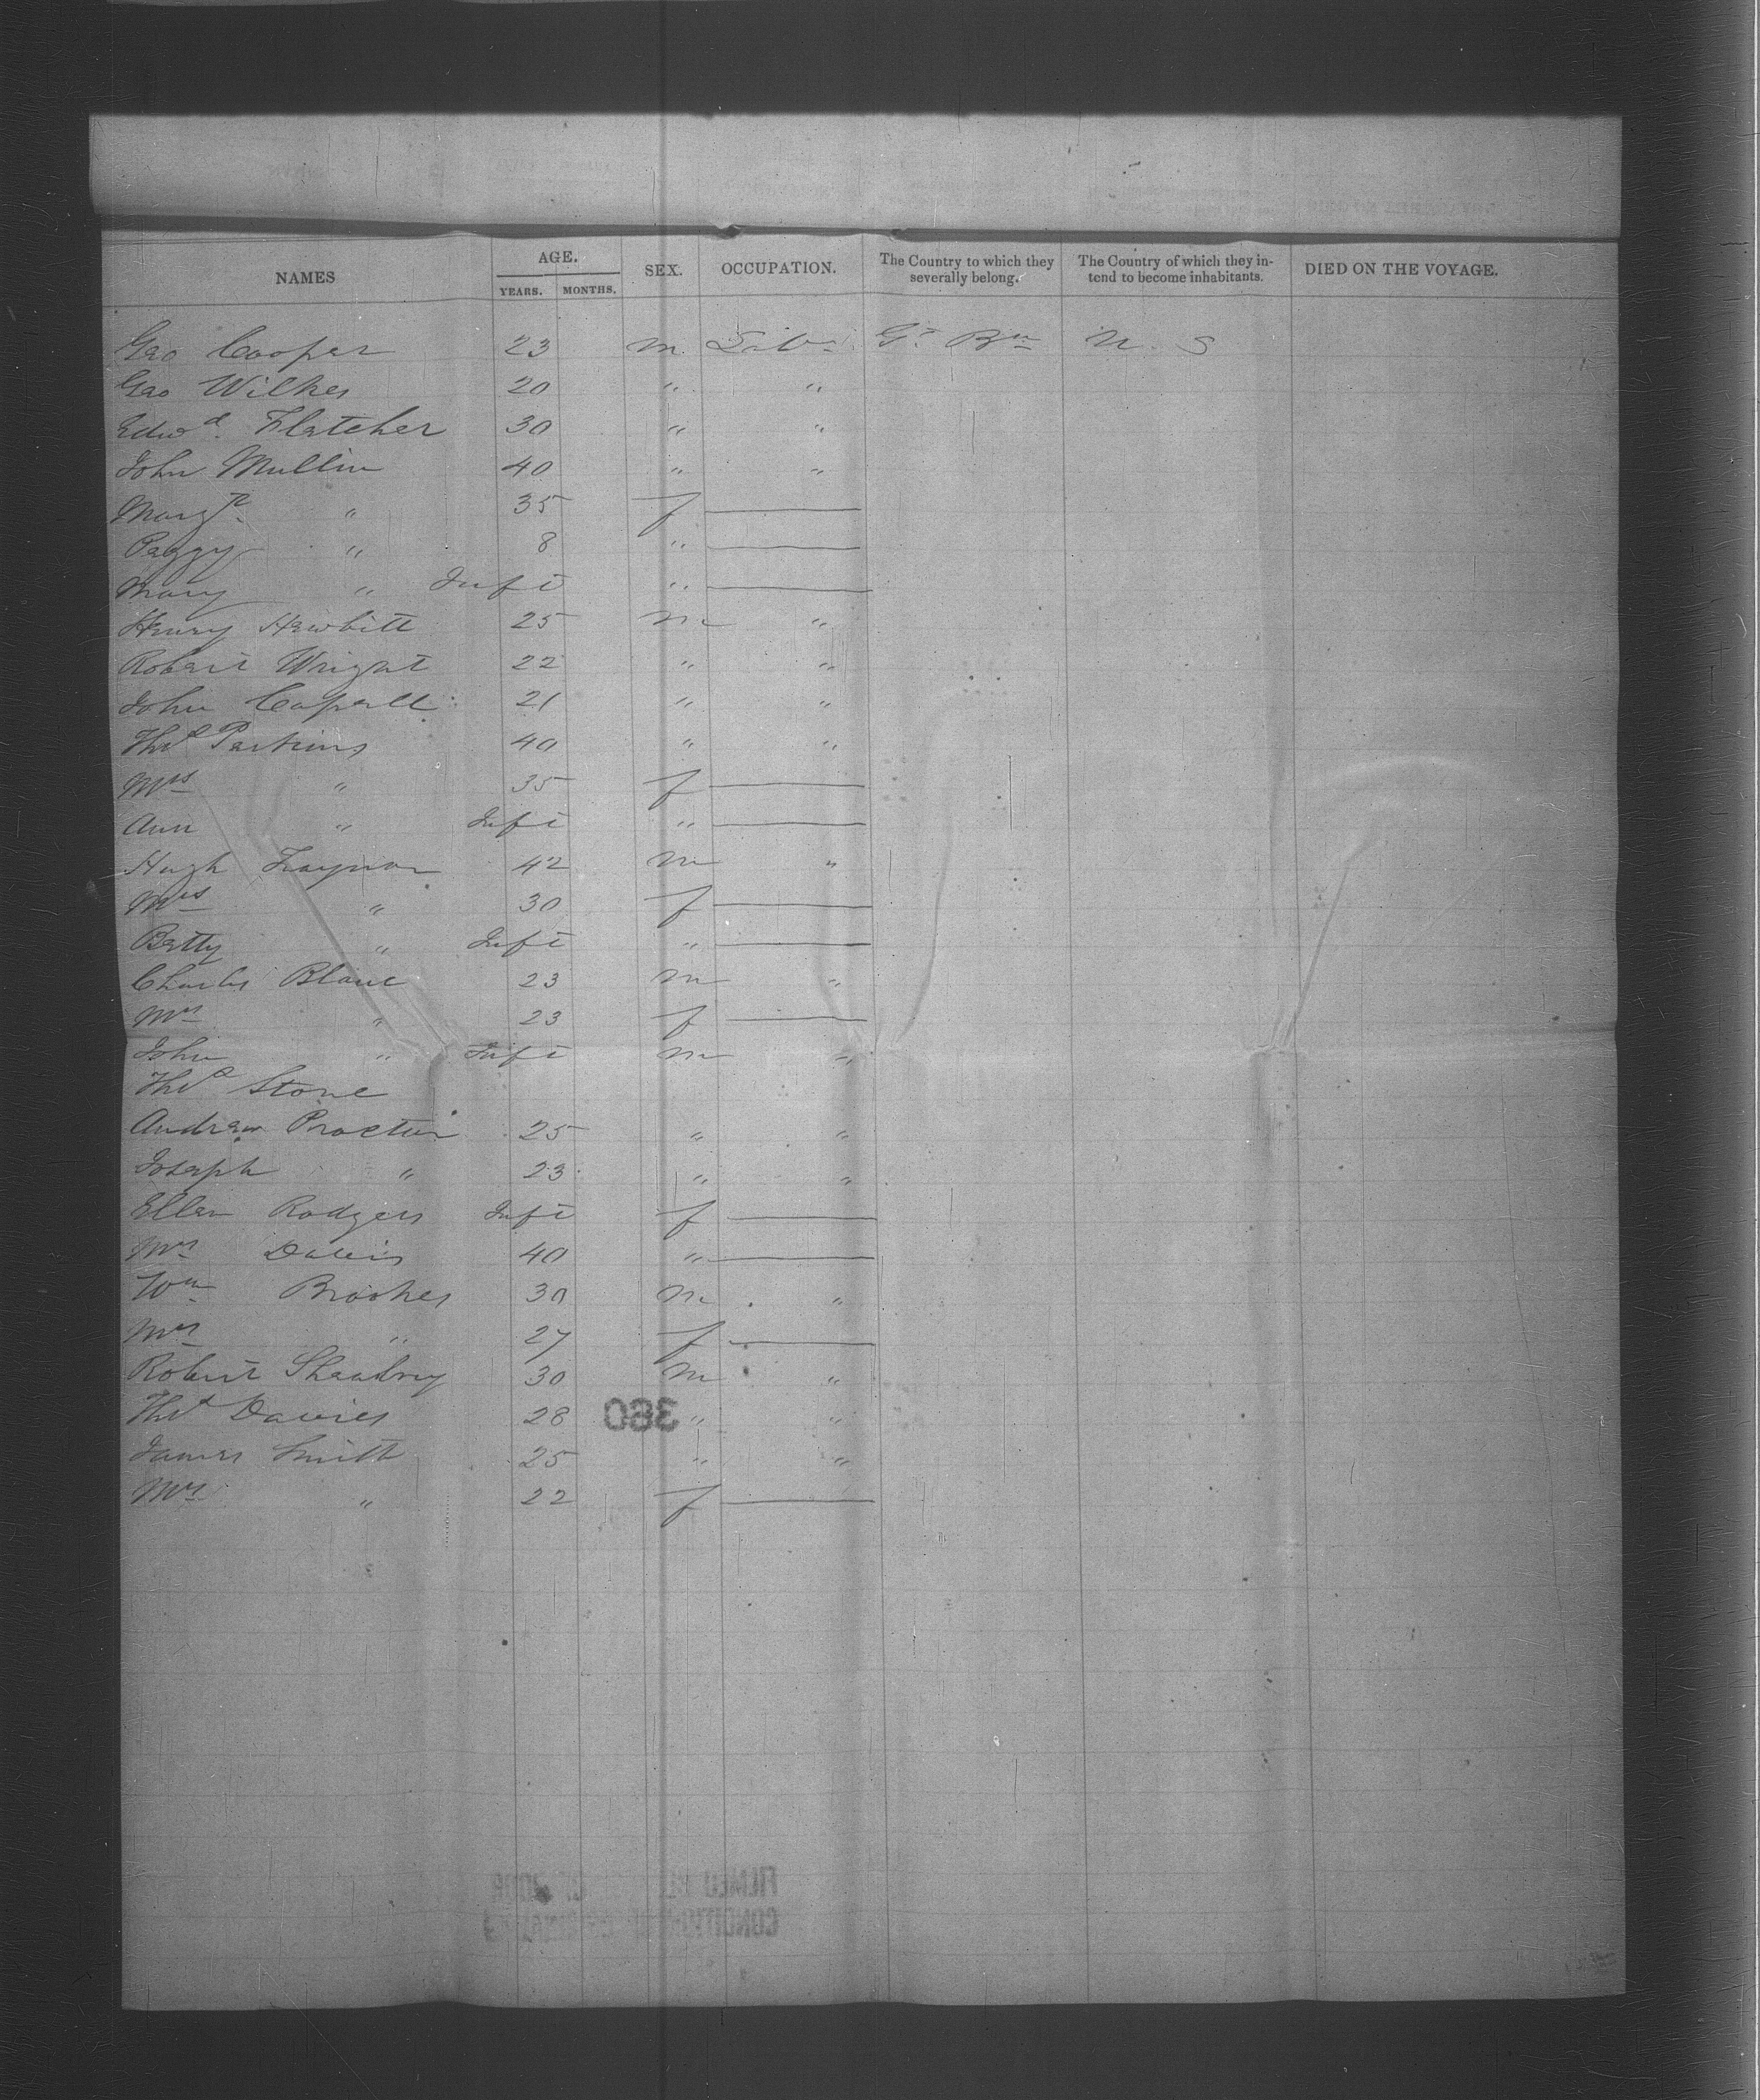 NAMES AGE. SEX. OCCUPATION. The Country to which they severally belong. The Country of which they intend to become inhabitants. DIED ON THE VOYAGE.
YEARS. MONTHS.
Geo Cooper 23 m. Labr. Gt Bn U. S
Geo Wilkes 20 " "
Edwd. Fletcher 30 " "
John Mullin 40 " "
Margt. " 35 f
Peggy " 8 "
Mary " Inft "
Henry Hewbitt 25 m "
Robert Wright 22 " "
John Capell 21 " "
Thos Perkins 40 " "
Mrs " 35 f
Ann " Inft "
Hugh 42 m "
Mrs " 30 f
Betty " Inft "
Charles Blane 23 m "
Mrs " 23 f
John " Inft m "
Thos Stone
Andrew Procter 25 " "
Joseph " 23 " "
Ellen Rodgers Inft f
Mrs Davis 40 "
Wm Brookes 30 m "
Mrs " 27 f
Robert 30 m "
Thos Davies 28 " "
360
James Smith 25 " "
Mrs " 22 f